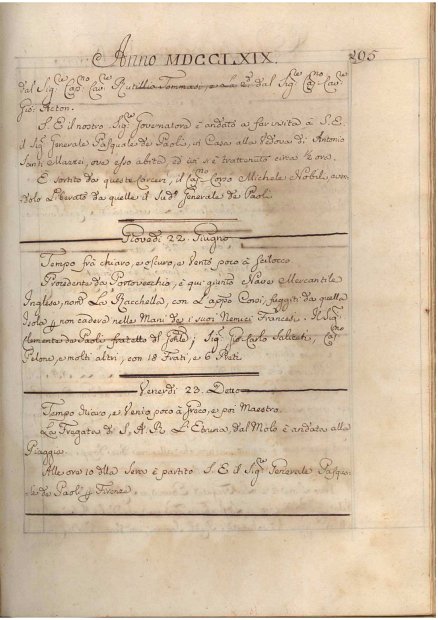 Anno MDCCLXIX. 205
dal Sig.re Cap.no Cav.re Rutillio Tommasi, e La 2.a dal Sig.re Cap.no Cav.re
Gio: Acton.
S. E. il nostro Sig.re Governatore è andato a far visita à S. E.
il Sig.re Generale Pasquale de Paoli, in Casa alla Vedova di Antonio
Santi Mazzei, ove esso abita, ed ivi si è trattenuto circa ½ ora.
E sortito da queste Carceri, il Cap.no Corso Michele Nobili, aven
dolo Liberato da quelle il Sud.o Generale de Paoli
Giovedì 22. Giugno
Tempo frà chiaro, e oscuro, e Vento poco à Scilocco.
Procedente da Portovecchio, è qui giunto Nave Mercantile
Inglese, nom.ta La Racchella, con L'appo Corsi, fuggiti da quella
Isola p non cadere nelle Mani de i suoi Nemici Francesi. Il Sig.re
Clemente de Paoli fratello di Sig.re Gio: Carlo Saliceti, Cap.no
Pelone, e molti altri, con 18 Frati, e 6 Preti
Venerdì 23. Detto
Tempo chiaro, e Vento poco à Greco, e poi Maestro.
La Fregata di S. A. R. L'Etruria, dal Molo è andata alla
Piaggia.
Alle ore 10 della Sera è partito S. E. il Sig.re Generale Pasqua-
le de Paoli p Firenze